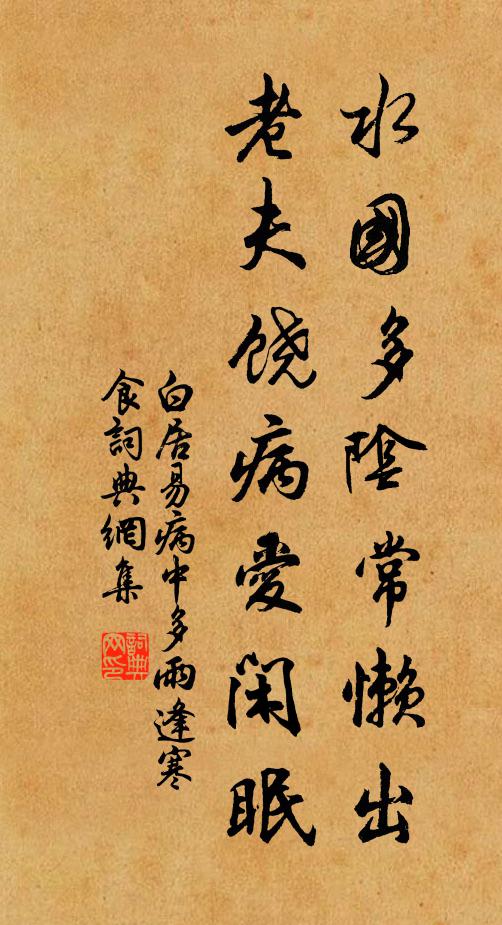 水國多陰常懶出
老夫饒病愛閑眠
白居易病中多雨逢寒
食詞典網集
詞典網印